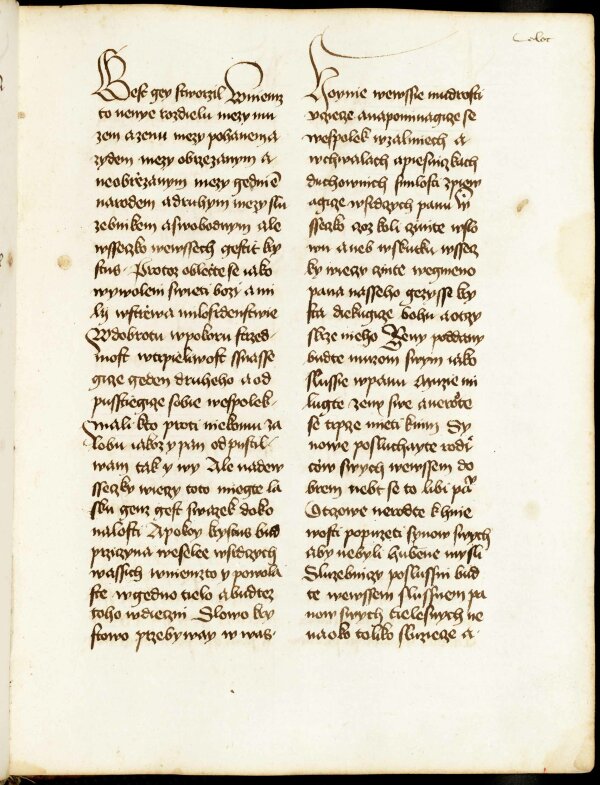 Coloc
Gest gey stworzil W niemz
to nenye rozdielu mezy mu
zem a zenu mezy pohanem a
zydem mezy obrzezanym a
neobrzezanym mezy gedniem
narodem a druhym mezy slu
zebnikem a swobodnym ale
wsseczko wewssech gestit kry
stus Protoz oblecte se iako
wywoleni swieti bozi a mi
lij wstrzewa milosrdenstwie
W dobrotu w pokoru strzed
most w trpieliwost ssnasse
gigize geden druheho a od
pusstiegize sobie wespolek
mali kto proti niekomu za
lobu iakoz y pan odpustil
wam tak y wy Ale nadew
ssecky wiezy toto miegte la
sku genz gest swazek doko
nalosti A pokoy krystus bud
przyczyna weselee w srdczych
wassich w niemzto y powola
ste w gedno tielo a budtez
toho wdieczni Slowo kry
stowo przebyway w was
Hoynie wewssie mudrosti
vczieze a napominagize se
wespolek w zalmiech a
w chwalach a piesniczkach
duchownich s milosti zpiew
agize w srdczych panu W
sseczko czoz koli czinite w slo
wu aneb w skutku wssecz
ky wieczy czinte we gmeno
pana nasseho gezysse kry
sta diekugize bohu a otczy
skrze nieho Zeny poddany
budte muzom swym iako
slussie w panu Muzie mi
lugte zeny swe a nerodte
se trpze mieti k nim Sy
nowe posluchayte rodi
czow swych wewssem do
brem nebt se to libi panu
Otczowe nerodte k hnie
wosti popuzeti synow swych
aby nebyli hubene mysli
Sluzebniczy poslussni bud
te wewssem slussnem pa
now swych tielesnych ne
na oko toliko sluziecze a